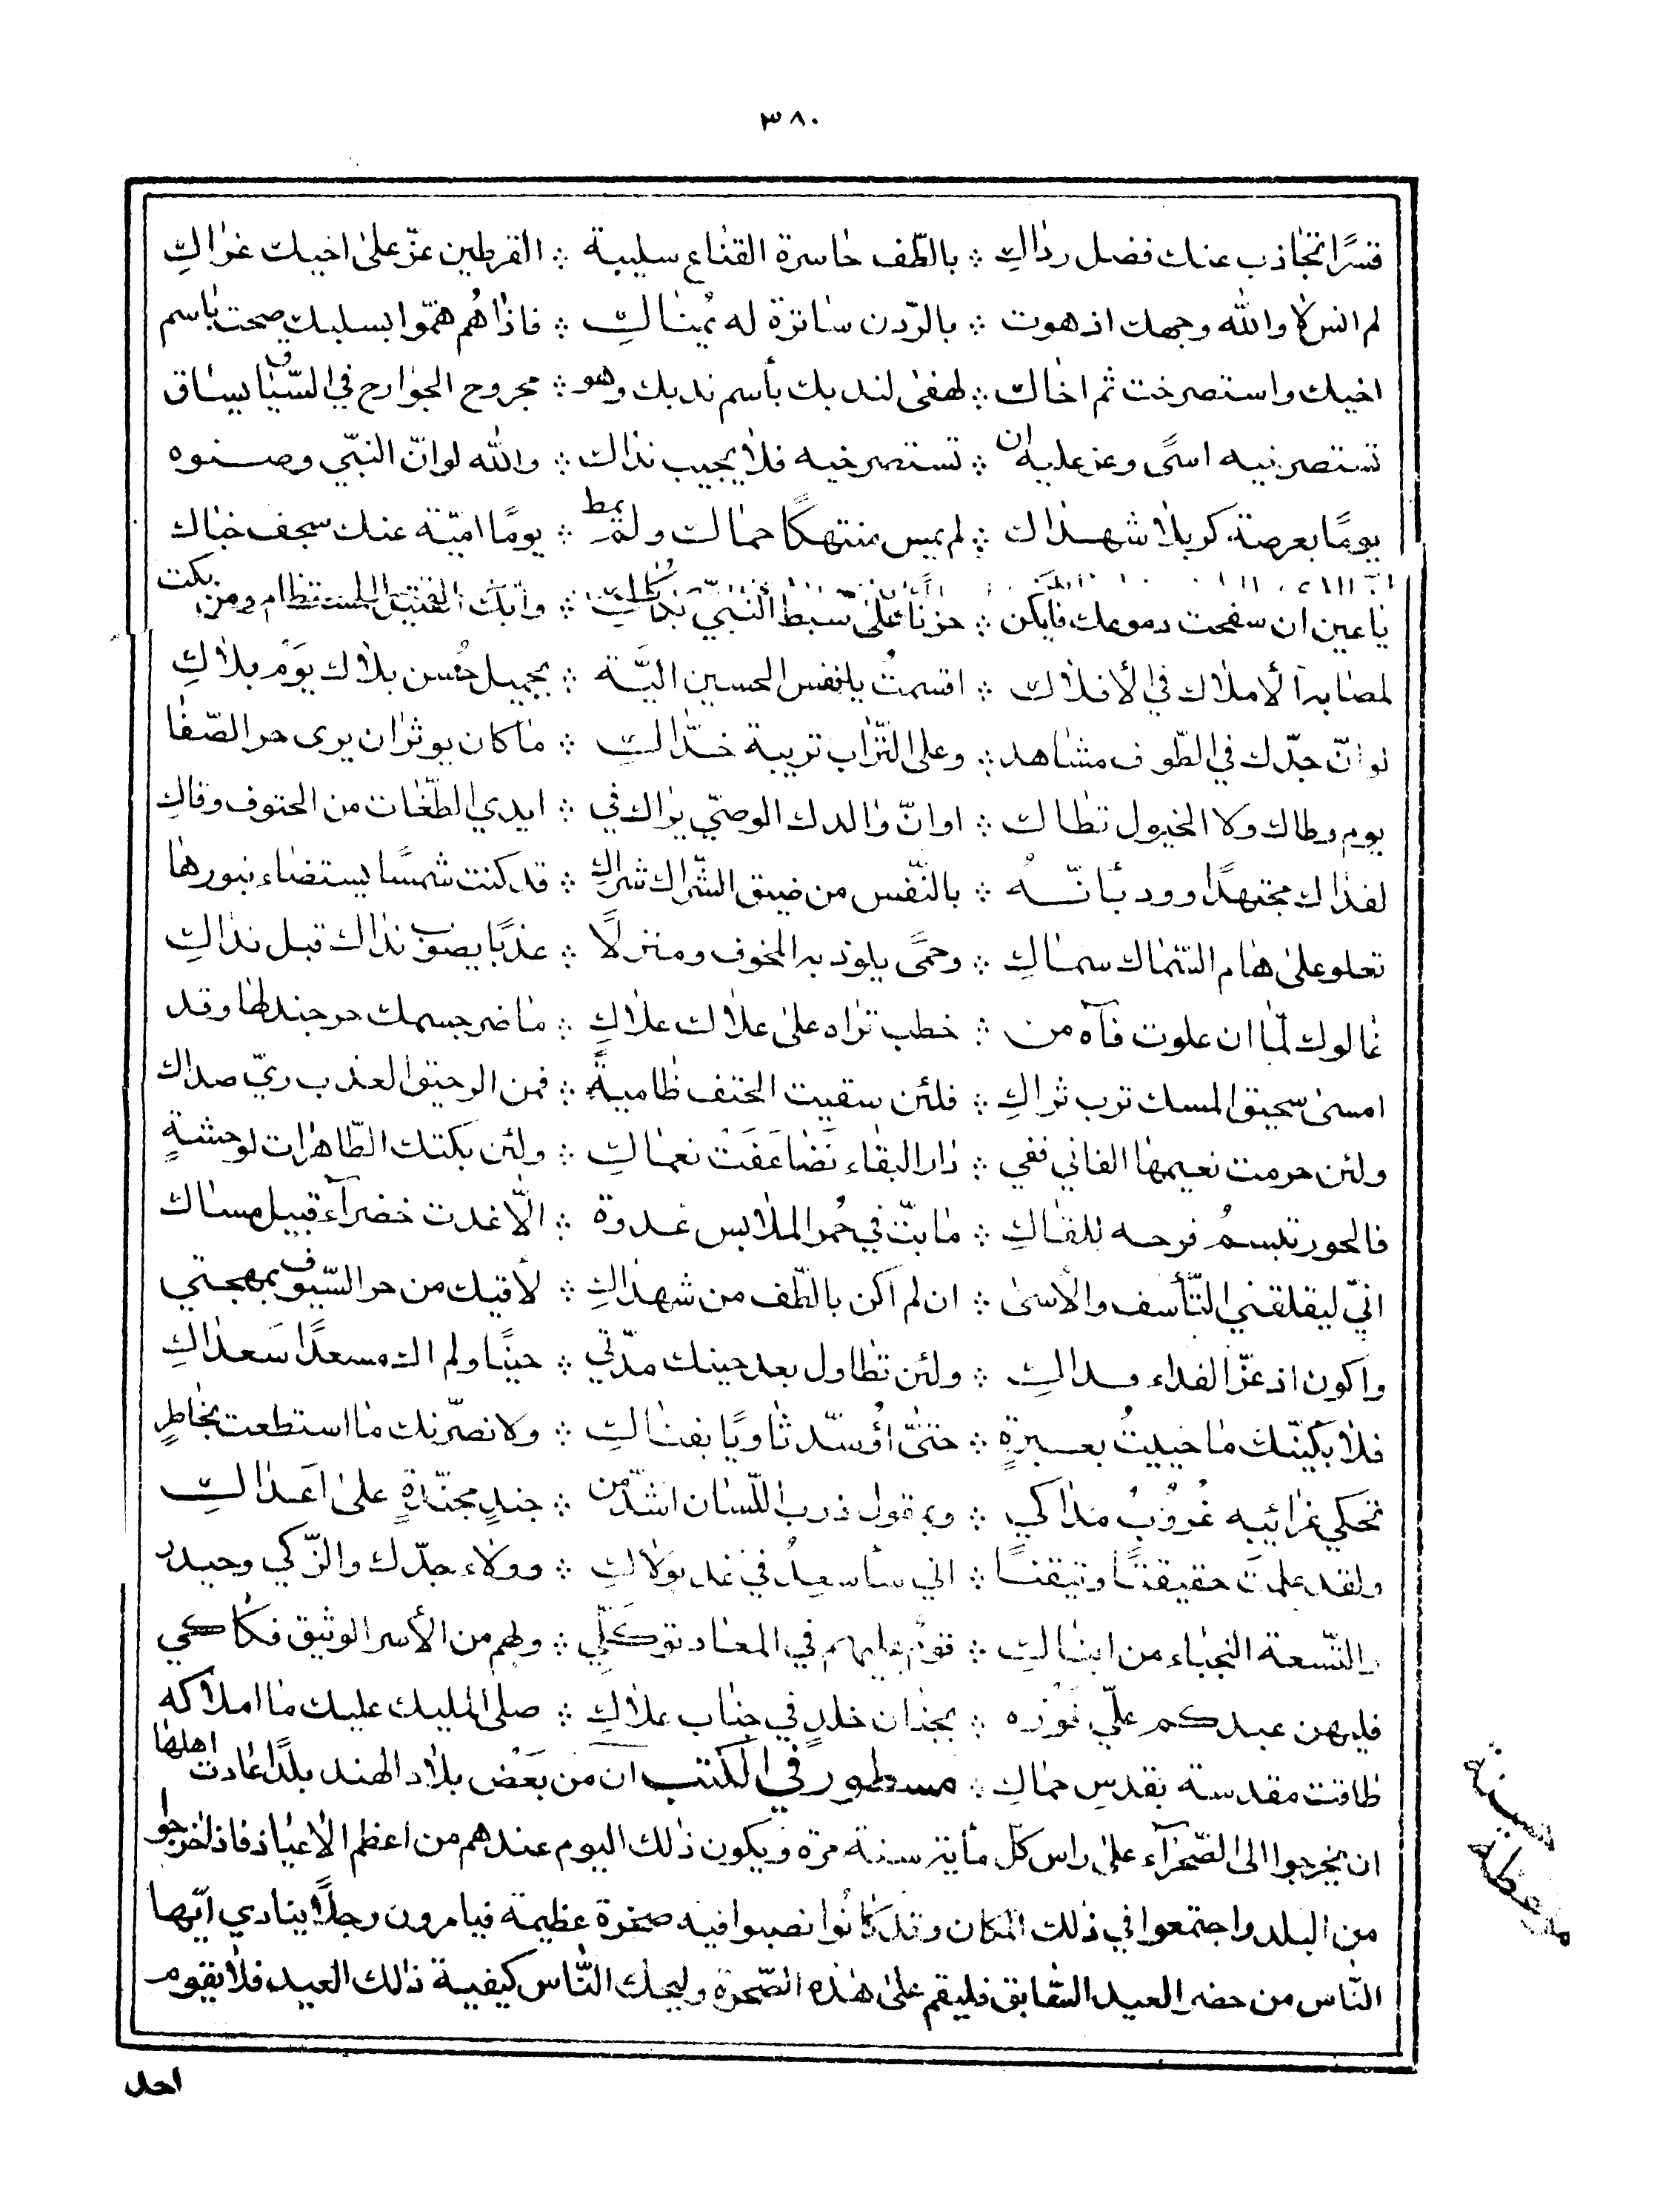 ٣٨٠
قسرًا تجاذب عنك فضل رداكِ ∴ بالطّف حاسرة القناع سليبة ∴ القرطين عزّ على اخيك عراكِ
لم انس لا والله وجهك اذ هوت ∴ بالرّدن ساترة له يُمناكِ ∴ فاذا هُم همّوا بسلبك صحت باسم
اخيك واستصرخت ثم اخاك ∴ لهفى لندبك بأسم ندبك وهو ∴ مجروح الجوارح في السّياق يساق
تستصرخيه اسىً وعز عليه ان ∴ تستصرخيه فلا يجيب نداك ∴ والله لو انّ النبّي وصنوه
يومًا بعرصة كربلا شهداك ∴ لم يمس منتهكًا حماك ولم يمط ∴ يومًا اميّة عنك سجف خباك
يا عين ان سفحت دموعك فليكن ∴ حزنًا على سبط النّبيّ بكاكِ ∴ وابك القتيل المستظام ومن بكت
لمصابه الأملاك في الأفلاك ∴ اقسمتُ يا نفس الحسين اليّة ∴ بجميل حُسن بلاك يوْم بلاكِ
لو انّ جدّك في الطّفوف مشاهد ∴ وعلى التّراب تريبة خدّاكِ ∴ ما كان يوثر ان يرى حر الصّفا
يوم وطاك ولا الخيول تطاك ∴ او انّ والدك الوصيّ يراك في ∴ ايدي الطّغات من الحتوف وقاكِ
لفداك مجتهدًا وود بأنّه ∴ بالنّفس من ضيق الشّراك شراكِ ∴ قد كنت شمسًا يستضاء بنورها
تعلو على هام السّماك سماكِ ∴ وحمىً يلوذ به المخوف ومنزلًا ∴ عذبًا يصوب نداك قبل نداكِ
غالوك لمّا ان علوت فآه من ∴ خطب تراه على علاك علاكِ ∴ ما ضر جسمك حر جندلها وقد
امسى سحيق المسك ترب ثراكِ ∴ فلئن سقيت الحتف ظاميةً ∴ فمن الرحيق العذب ريّ صداك
ولئن حرمت نعيمها الفاني ففي ∴ دار البقاء تَضاعَفَتْ نعماكِ ∴ ولئن بكتك الطّاهرات لوحشةٍ
فالحور تبسمُ فرحه للقاكِ ∴ ما بتّ في حُمر الملابس غدوة ∴ الّا غدت خضرآء قبيل مساك
انّي ليقلقني التّأسف والأسى ∴ ان لم اكن بالطّف من شهداكِ ∴ لأقيك من حر السّيوف بمهجتي
واكون اذ عزّ الفداء فداكِ ∴ ولئن تطاول بعد حينك مدّتي ∴ حينًا ولم اك مسعدًا سَعداكِ
فلأبكينّك ما حييتُ بعبرةٍ ∴ حتّى أؤسّد ثاويًا بفناكِ ∴ ولانصرنّك ما استطعت بخاطرٍ
تحكي غرائبه غُروُبُ مداكي ∴ وبمقول ذرب اللّسان اشدّ من ∴ جندٍ مجنّدةٍ على اعَداكِ
ولقد علمتَ حقيقتًا وتيقنًا ∴ اني سأسعدُ في غد بولاكِ ∴ وولاء جدّك والزّكي وحيدر
والتّسعة النجباء من ابناكِ ∴ قومٌ عليهم في المعاد توكّلي ∴ ولهم من الأسر الوثيق فكاكي
فليهن عبدكم علّي فَوْزه ∴ بجنان خلدٍ في جناب علاكِ ∴ صلى المليك عليك ما املاكه
طافت مقدسة بقدسِ حماكِ ∴ مسطور في الكتب ان من بَعْض بلاد الهند بلدًا عادت اهلها
ان يخرجوا الى الصّحرآء على راس كل مأية سنة مرة ويكون ذلك اليوم عندهم من اعظم الأعياد فاذا خرجوا
من البلد واجتمعوا في ذلك المكان وقد كانُوا نصبوا فيه صخرة عظيمة فيامرون رجلًا ينادي ايّها
النّاس من حضر العيد السّابق فليقم على هذه الصّخرة وليحك النّاس كيفية ذلك العيد فلا يقوم
موعظة حسنة
احد